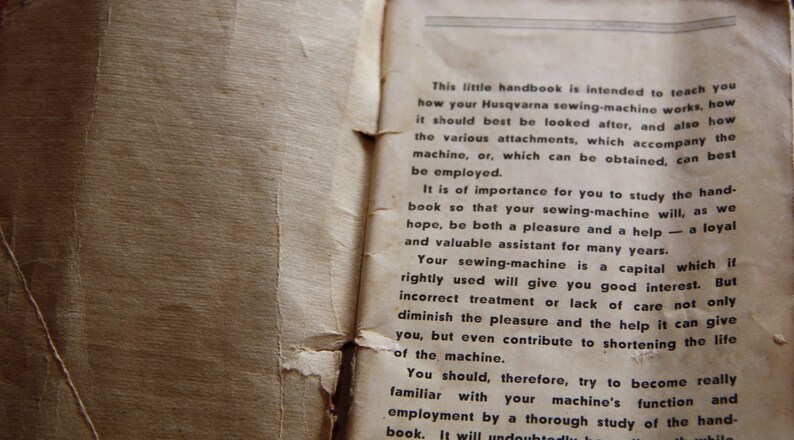 This little handbook is intended to teach you
how your Husqvarna sewing-machine works, how
it should best be looked after, and also how
the various attachments, which accompany the
machine, or, which can be obtained, can best
be employed.
It is of importance for you to study the hand-
book so that your sewing-machine will, as we
hope, be both a pleasure and a help — a loyal
and valuable assistant for many years.
Your sewing-machine is a capital which if
rightly used will give you good interest. But
incorrect treatment or lack of care not only
diminish the pleasure and the help it can give
you, but even contribute to shortening the life
of the machine.
You should, therefore, try to become really
familiar with your machine's function and
employment by a thorough study of the hand-
book. It will undoubtedly